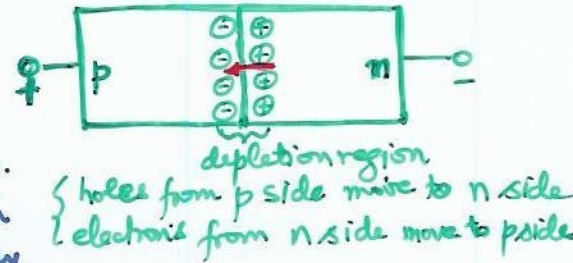 - +
- +
+ p - + n -
- +
depletion region
{ holes from p side move to n side
{ electrons from n side move to p side